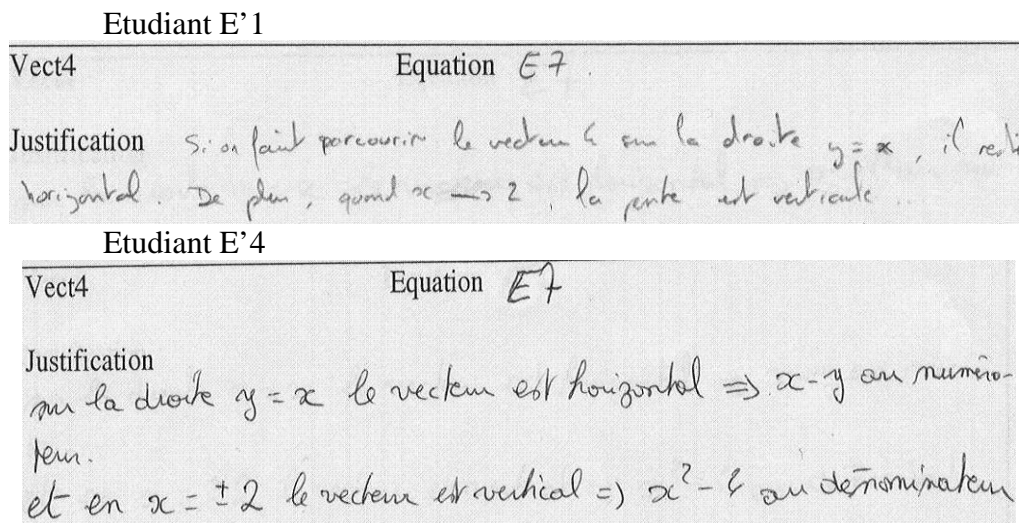 Etudiant E'1
Vect4 Equation E7.
Justification Si on fait parcourir le vecteur 4 sur la droite y = x, il reste
horizontal. De plus, quand x → 2, la pente est verticale...
Etudiant E'4
Vect4 Equation E7
Justification
sur la droite y = x le vecteur est horizontal ⇒ x-y au numéra-
teur.
et en x = ± 2 le vecteur est vertical ⇒ x² - 4 au dénominateur